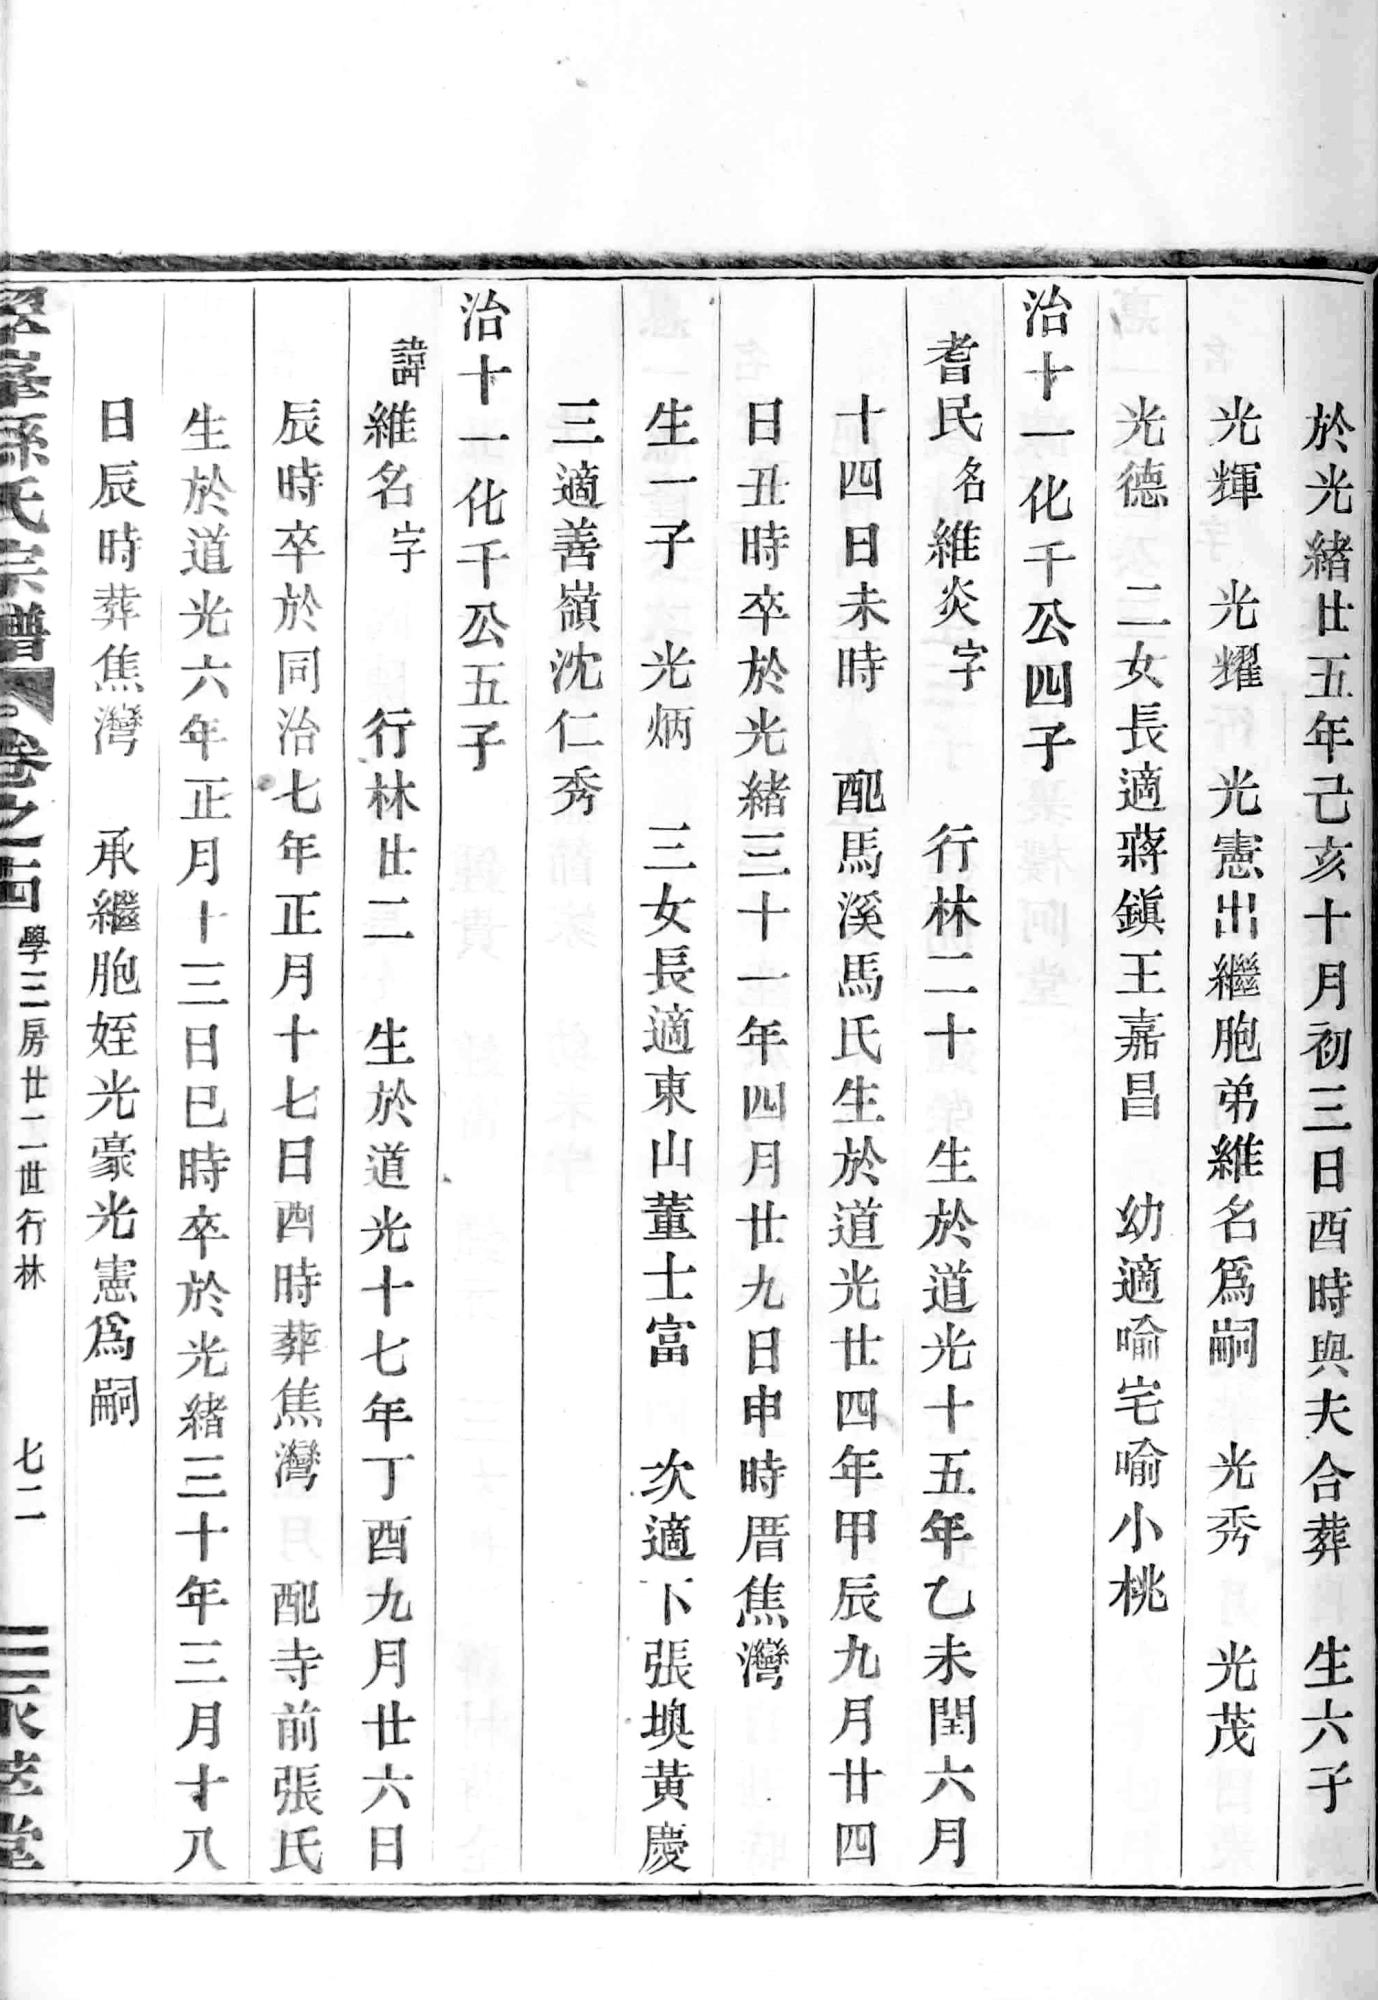 於光緒廿五年己亥十月初三日酉時與夫合葬　生六子
光輝　光耀　光憲出繼胞弟維名爲嗣　光秀　光茂
光德　二女長適蔣鎭王嘉昌　幼適喻宅喻小桃
治十一化千公四子
耆民名維炎字　行林二十　生於道光十五年乙未閏六月
十四日未時　配馬溪馬氏生於道光廿四年甲辰九月廿四
日丑時卒於光緒三十一年四月廿九日申時厝焦灣
生一子　光炳　三女長適東山董士富　次適下張墺黃慶
三適善嶺沈仁秀
治十一化千公五子
諱維名字　行林廿二　生於道光十七年丁酉九月廿六日
辰時卒於同治七年正月十七日酉時葬焦灣　配寺前張氏
生於道光六年正月十三日巳時卒於光緒三十年三月十八
日辰時葬焦灣　承繼胞姪光豪光憲爲嗣
孫氏宗譜　卷之十四　學三房廿二世行林　七二　堂